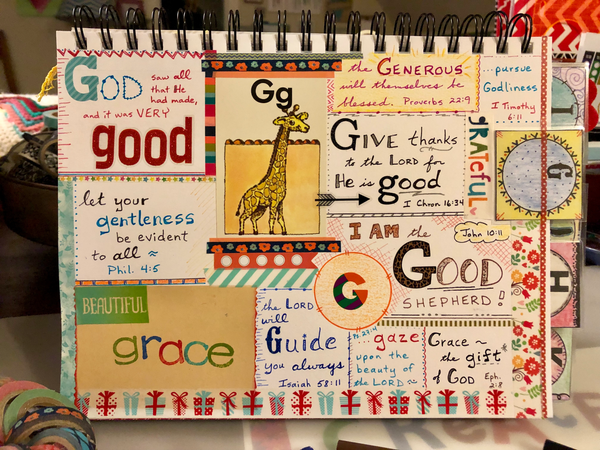 GOD saw all
that He
had made,
and it was VERY
good
Gg
the GENEROUS
will themselves be
blessed. Proverbs 22:9
...pursue
Godliness
I Timothy
6:11
GIVE thanks
to the LORD for
He is good
I Chron 16:34
GRATeful
G
let your
gentleness
be evident
to all ~
Phil. 4:5
I AM the
John 10:11
GOOD
SHEPHERD!
BEAUTIFUL
grace
G
the LORD
will
Guide
you always
Isaiah 58:11
Ps. 27:4
...gaze
upon the
beauty of
the LORD ~
Grace ~
the gift
of GOD Eph.
2:8
I
H
K